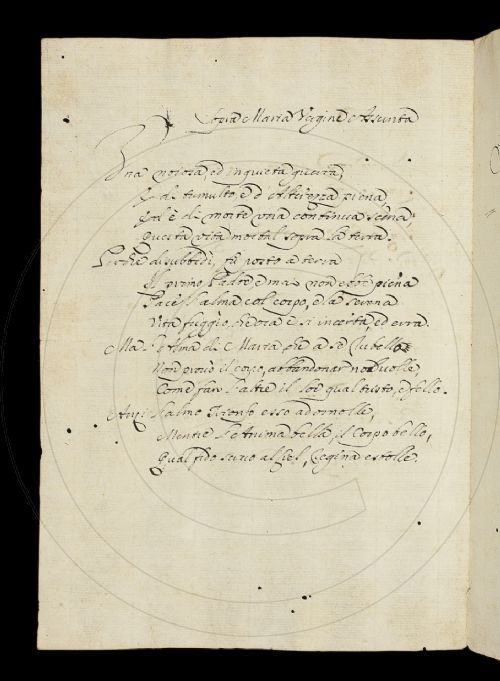 Sopra Maria Vergine Assunta
Una noiosa, ed inquieta guerra,
di tumulto, e d' piena,
Qual è di morte una continua scena,
Questa vita mortal sopra la terra.
Perchè disubbidì, fu posto a terra
Il primo Padre, e mai non ebbe piena
Pace l'alma col corpo, e la serena
Vita fuggìo, ch'ora è sì incerta, ed erra.
Ma l'Alma di Maria, che a se
Non provò il corpo, abbandonar nol volle,
Come fan l'altre il lor qual tristo, e fello.
Anzi l'almo Trionfo esso adornolle,
Mentre l'Anima bella, il Corpo bello,
Qual fido servo al Ciel, Regina estolle.